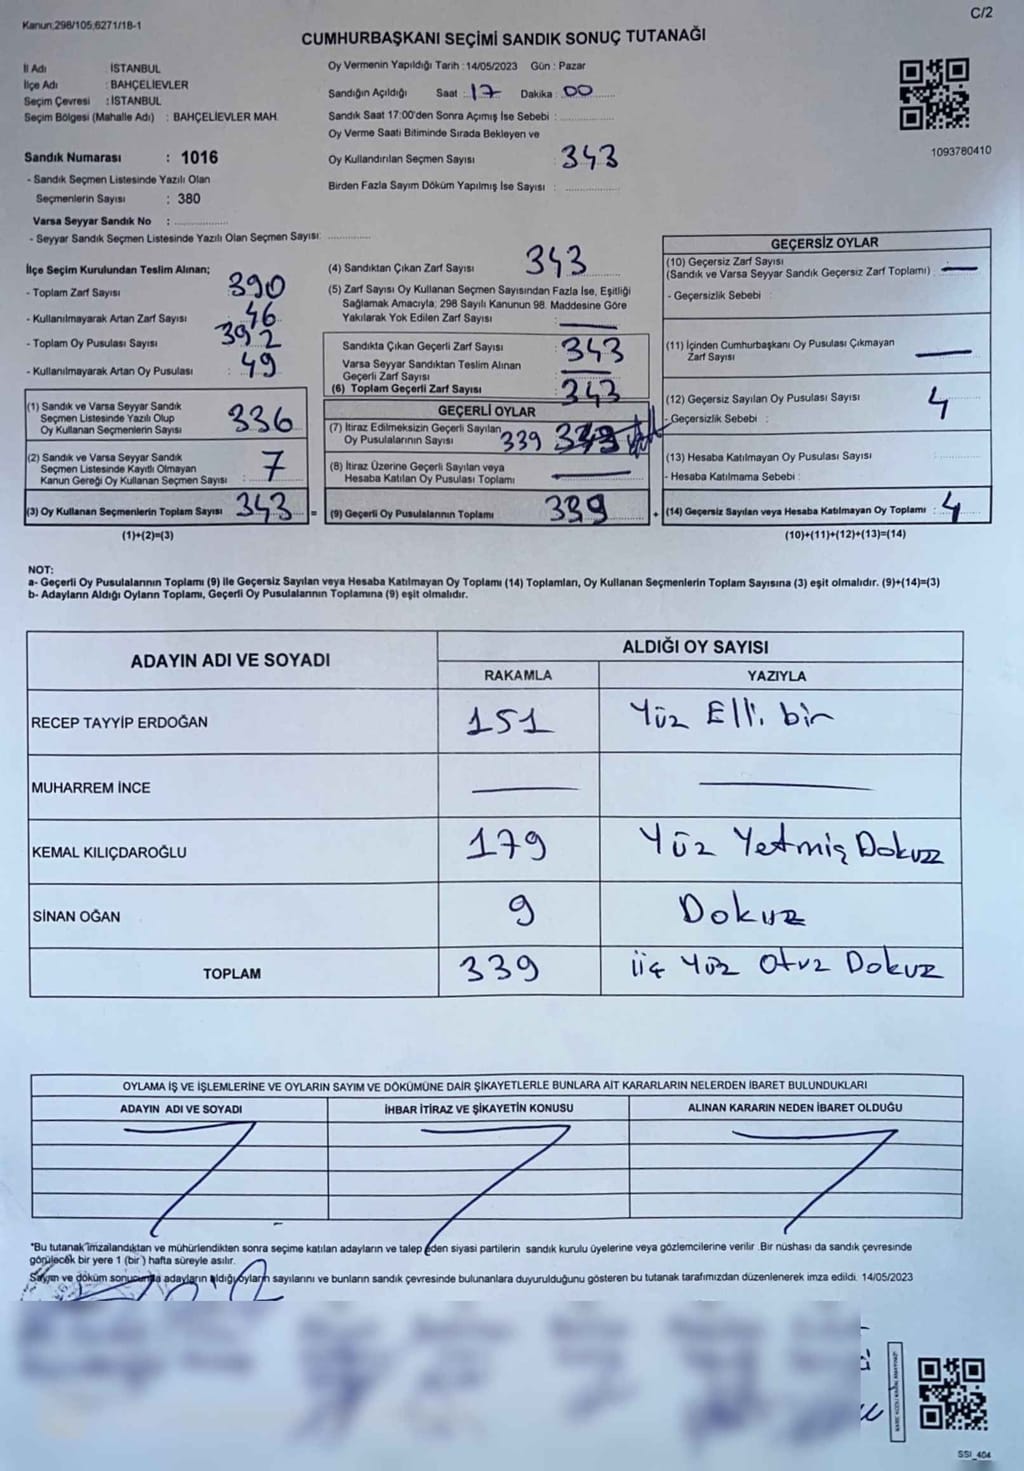 Kanun:298/105,6271/18-1
C/2
CUMHURBAŞKANI SEÇİMİ SANDIK SONUÇ TUTANAĞI
İl Adı : İSTANBUL
İlçe Adı : BAHÇELİEVLER
Seçim Çevresi : İSTANBUL
Seçim Bölgesi (Mahalle Adı) : BAHÇELİEVLER MAH.
Sandık Numarası : 1016
- Sandık Seçmen Listesinde Yazılı Olan
Seçmenlerin Sayısı : 380
Varsa Seyyar Sandık No :
- Seyyar Sandık Seçmen Listesinde Yazılı Olan Seçmen Sayısı:
Oy Vermenin Yapıldığı Tarih : 14/05/2023 Gün : Pazar
Sandığın Açıldığı Saat : 17 Dakika : 00
Sandık Saat 17:00'den Sonra Açımış İse Sebebi :
Oy Verme Saati Bitiminde Sırada Bekleyen ve
Oy Kullandırılan Seçmen Sayısı : 343
Birden Fazla Sayım Döküm Yapılmış İse Sayısı :
1093780410
İlçe Seçim Kurulundan Teslim Alınan;
- Toplam Zarf Sayısı : 390
- Kullanılmayarak Artan Zarf Sayısı : 46
- Toplam Oy Pusulası Sayısı : 392
- Kullanılmayarak Artan Oy Pusulası : 49
(1) Sandık ve Varsa Seyyar Sandık
Seçmen Listesinde Yazılı Olup
Oy Kullanan Seçmenlerin Sayısı : 336
(2) Sandık ve Varsa Seyyar Sandık
Seçmen Listesinde Kayıtlı Olmayan
Kanun Gereği Oy Kullanan Seçmen Sayısı : 7
(3) Oy Kullanan Seçmenlerin Toplam Sayısı : 343 =
(1)+(2)=(3)
(4) Sandıktan Çıkan Zarf Sayısı : 343
(5) Zarf Sayısı Oy Kullanan Seçmen Sayısından Fazla İse, Eşitliği
Sağlamak Amacıyla; 298 Sayılı Kanunun 98. Maddesine Göre
Yakılarak Yok Edilen Zarf Sayısı : —
Sandıkta Çıkan Geçerli Zarf Sayısı : 343
Varsa Seyyar Sandıktan Teslim Alınan
Geçerli Zarf Sayısı : —
(6) Toplam Geçerli Zarf Sayısı : 343
GEÇERLİ OYLAR
(7) İtiraz Edilmeksizin Geçerli Sayılan
Oy Pusulalarının Sayısı : 339
(8) İtiraz Üzerine Geçerli Sayılan veya
Hesaba Katılan Oy Pusulası Toplamı : —
(9) Geçerli Oy Pusulalarının Toplamı : 339 +
GEÇERSİZ OYLAR
(10) Geçersiz Zarf Sayısı
(Sandık ve Varsa Seyyar Sandık Geçersiz Zarf Toplamı) : —
- Geçersizlik Sebebi :
(11) İçinden Cumhurbaşkanı Oy Pusulası Çıkmayan
Zarf Sayısı : —
(12) Geçersiz Sayılan Oy Pusulası Sayısı : 4
- Geçersizlik Sebebi :
(13) Hesaba Katılmayan Oy Pusulası Sayısı :
- Hesaba Katılmama Sebebi :
(14) Geçersiz Sayılan veya Hesaba Katılmayan Oy Toplamı : 4
(10)+(11)+(12)+(13)=(14)
NOT:
a- Geçerli Oy Pusulalarının Toplamı (9) ile Geçersiz Sayılan veya Hesaba Katılmayan Oy Toplamı (14) Toplamları, Oy Kullanan Seçmenlerin Toplam Sayısına (3) eşit olmalıdır. (9)+(14)=(3)
b- Adayların Aldığı Oyların Toplamı, Geçerli Oy Pusulalarının Toplamına (9) eşit olmalıdır.
ADAYIN ADI VE SOYADI
ALDIĞI OY SAYISI
RAKAMLA YAZIYLA
RECEP TAYYİP ERDOĞAN 151 Yüz Elli bir
MUHARREM İNCE — —
KEMAL KILIÇDAROĞLU 179 Yüz Yetmiş Dokuz
SİNAN OĞAN 9 Dokuz
TOPLAM 339 üç Yüz Otuz Dokuz
OYLAMA İŞ VE İŞLEMLERİNE VE OYLARIN SAYIM VE DÖKÜMÜNE DAİR ŞİKAYETLERLE BUNLARA AİT KARARLARIN NELERDEN İBARET BULUNDUKLARI
ADAYIN ADI VE SOYADI İHBAR İTİRAZ VE ŞİKAYETİN KONUSU ALINAN KARARIN NEDEN İBARET OLDUĞU
*Bu tutanak imzalandıktan ve mühürlendikten sonra seçime katılan adayların ve talep eden siyasi partilerin sandık kurulu üyelerine veya gözlemcilerine verilir .Bir nüshası da sandık çevresinde
görülecek bir yere 1 (bir) hafta süreyle asılır.
Sayım ve döküm sonucunda adayların aldığı oyların sayılarını ve bunların sandık çevresinde bulunanlara duyurulduğunu gösteren bu tutanak tarafımızdan düzenlenerek imza edildi. 14/05/2023
SSI_404